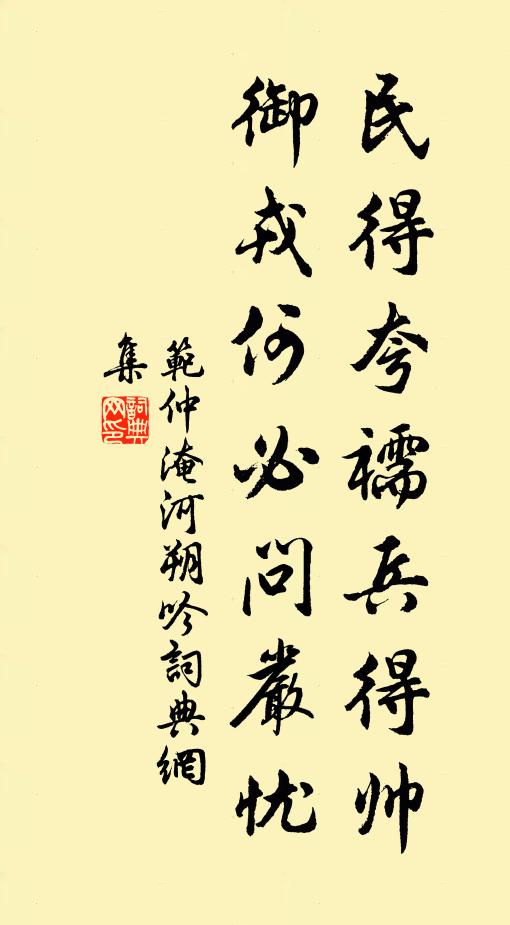 民得夸襦兵得帅
御戎何必问嚴忧
範仲淹河朔吟詞典網
集
詞典网印